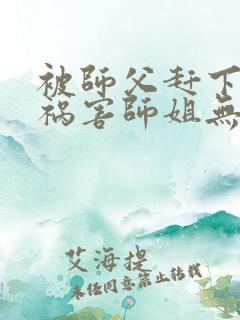 被師父赶下
祸害師姐無
艾海提
未任同意禁止转载